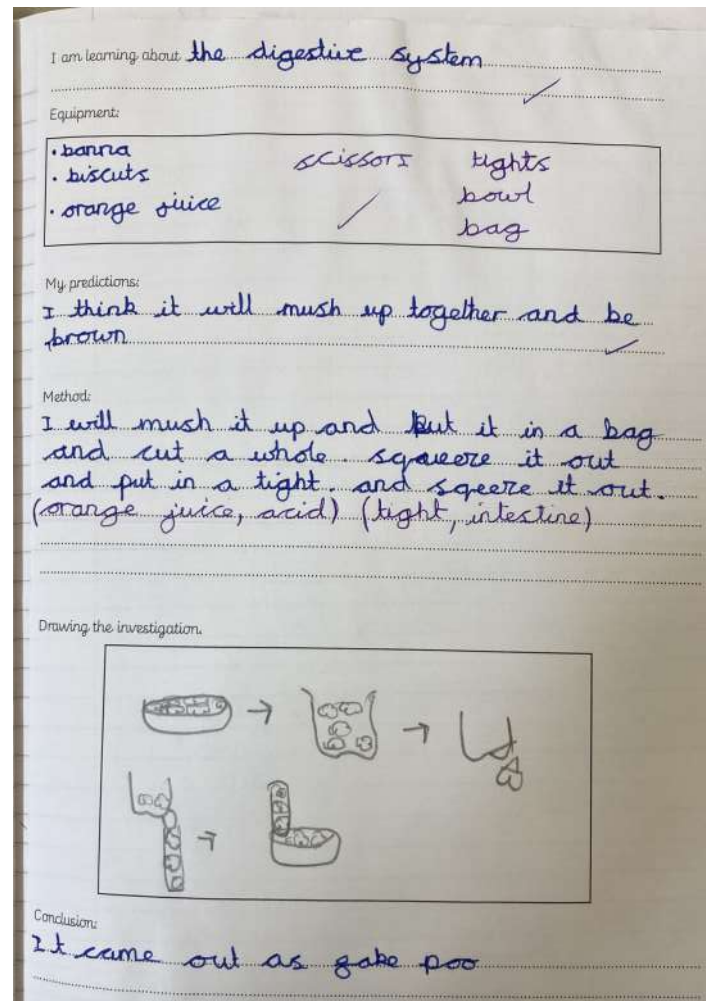 I am learning about the digestive system
Equipment:
• banna scissors tights
• biscuts bowl
• orange juice bag
My predictions:
I think it will mush up together and be
brown
Method:
I will mush it up and put it in a bag
and cut a whole. sqaueeze it out
and put in a tight. and sqeeze it out.
(orange juice, acid) (tight, intestine)
Drawing the investigation.
Conclusion:
It came out as fake poo